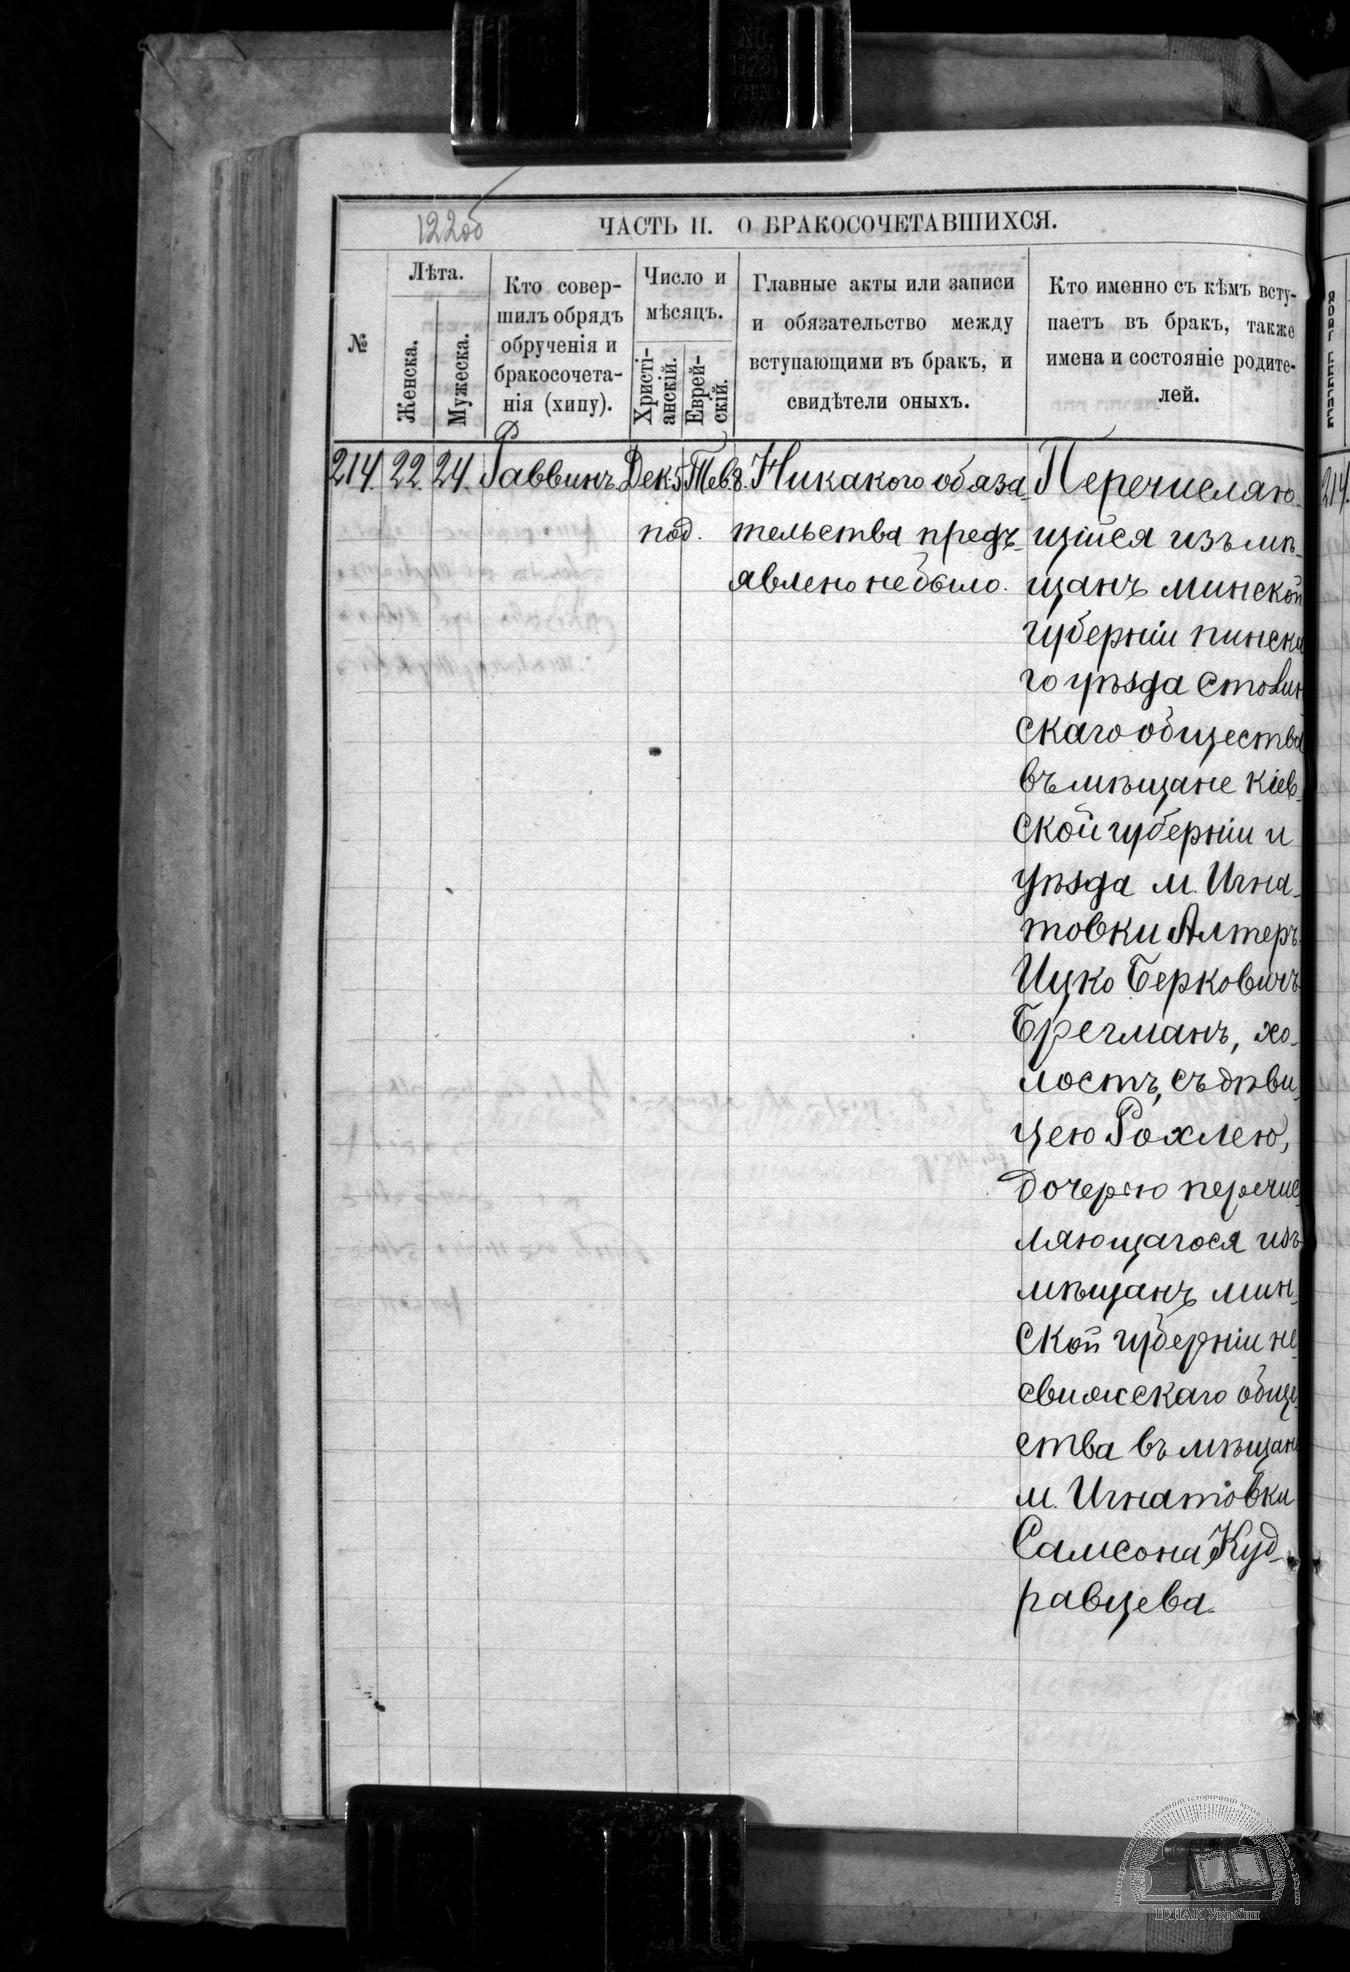 122об
ЧАСТЬ II. О БРАКОСОЧЕТАВШИХСЯ.
№
Лѣта.
Женска.
Мужеска.
Кто совер-
шилъ обрядъ
обрученія и
бракосочета-
нія (хипу).
Число и
мѣсяцъ.
Христі-
анскій.
Еврей-
скій.
Главные акты или записи
и обязательство между
вступающими въ бракъ, и
свидѣтели оныхъ.
Кто именно съ кѣмъ всту-
паетъ въ бракъ, также
имена и состояніе родите-
лей.
214. 22. 24. Раввинъ Дек. 5 Тев. 8. Никакого обяза-
под. тельства предъ-
явлено не было.
Перечисляю-
щійся изъ мѣ-
щанъ минской
губерніи пинска
го уѣзда столин
скаго общества
въ мѣщане Кіев-
ской губерніи и
уѣзда м. Игна-
товки Алтеръ-
Ицко Берковичъ
Брегманъ, хо-
лостъ, съ дѣви-
цею Рохлею,
дочерью перечис
ляющагося изъ
мѣщанъ мин-
ской губерніи не-
свижскаго обще-
ства въ мѣщане
м. Игнатовки
Самсона Куд-
равцева.
214.
ЦДІАК України